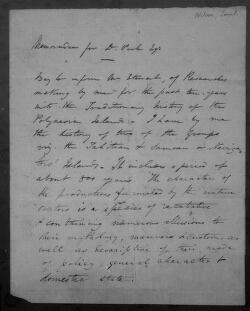 Memorandum for Dr
Beg to inform Mr Stewart, of Researches
making by me for the past ten years
into the Traditionary History of the
Polynesian Islands. I have by me
the history of two of the Groups
viz. the Tahitian & Samoan or Navigators
Islands. It includes a period of
about 800 years. The character of
the productions furnished by the native
orators is a species of recitative
& containing numerous allusions to
their mythology, manners & customs as
well as descriptive of their mode
of policy, general character &
domestic state.